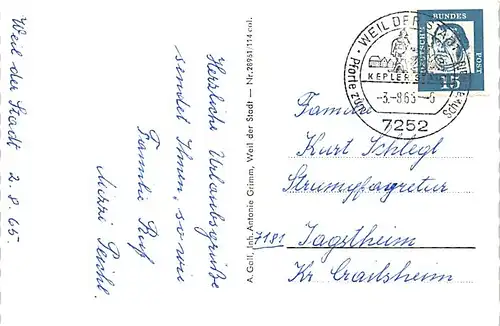 Weil der Stadt 2.8.65.
Herzliche Urlaubsgrüße
sendet Ihnen, sowie
Familie Ruf
Mizzi Seichl.
A. Goll, Inh. Antonie Grimm, Weil der Stadt — Nr. 28951/114 col.
WEIL DER STADT
KEPLERSTADT
Pforte zum Schwa
-3.-8.65--6
7252
DEUTSCHE BUNDES POST
15
Familie
Kurt Schlegl
Strumpfagretur
7181 Jagstheim
Kr Crailsheim